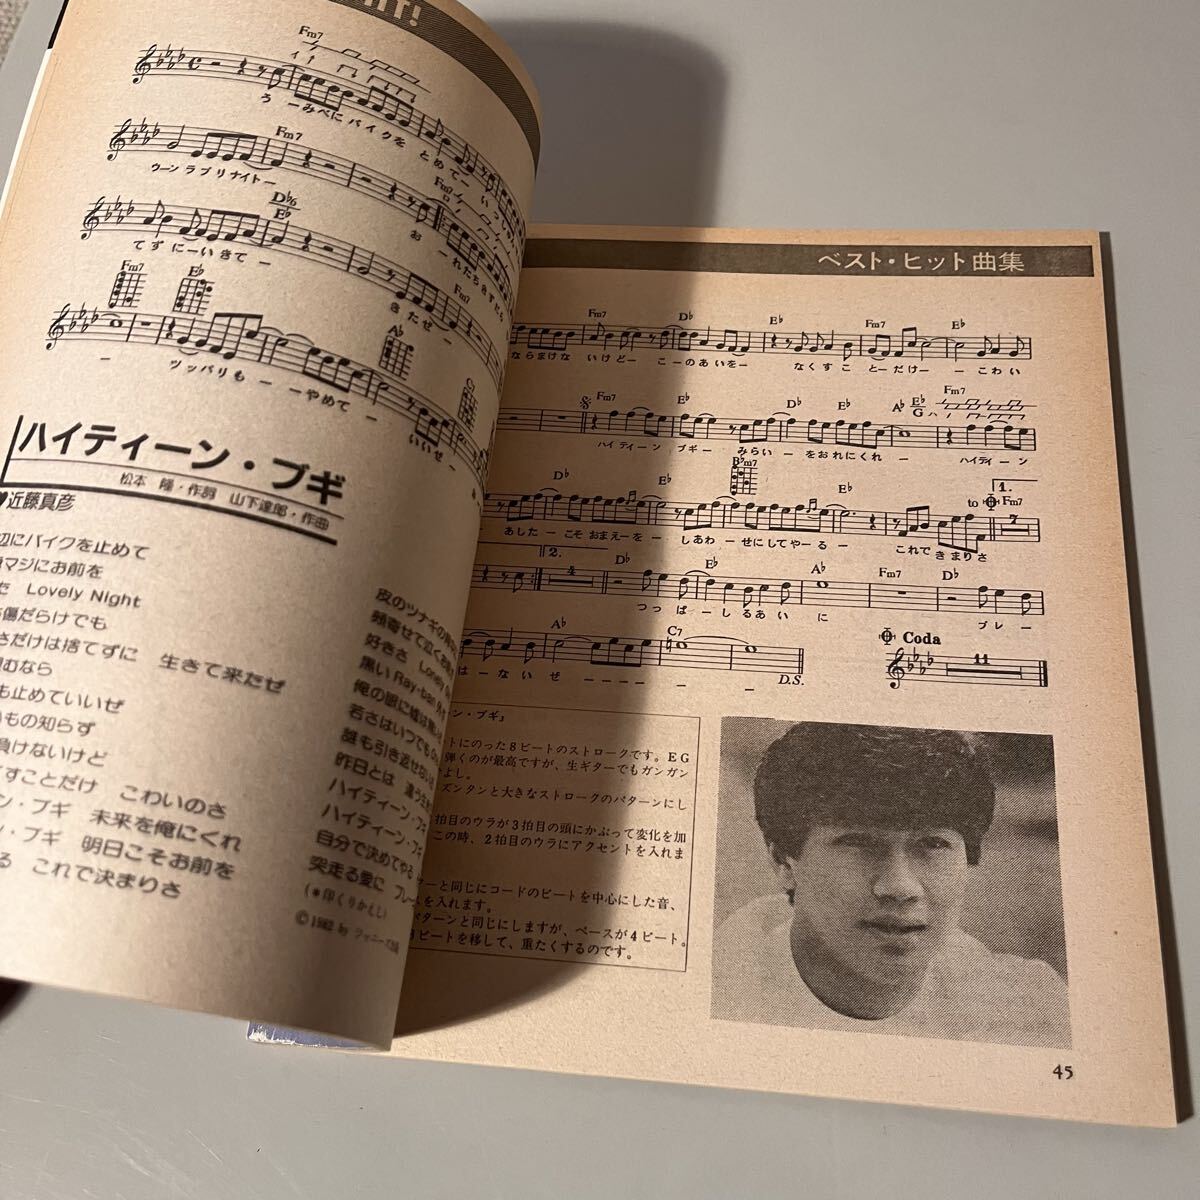 Fm7
うーみべにバイクを とめてー いっ
Fm7
Fm7
ウーンラブリナイトー お ーれたちきずだら
D♭6
E♭
Fm7
てずにーいきてー きたぜー
Fm7 E♭ A♭
ー ツッパリもーーやめてー いいぜー
ハイティーン・ブギ
松本 隆・作詞 山下達郎・作曲
近藤真彦
辺にバイクを止めて
マジにお前を
Lovely Night
傷だらけでも
さだけは捨てずに 生きて来たぜ
むなら
も止めていいぜ
いもの知らず
負けないけど
すことだけ こわいのさ
ン・ブギ 未来を俺にくれ
ン・ブギ 明日こそお前を
る これで決まりさ
皮のツナギの
頬寄せて泣く
好きさ Lovely
黒い Ray-ban
俺の眼に嘘は
若さはいつでも
誰も引き返せない
昨日とは 違う
ハイティーン・ブギ
ハイティーン・ブギ
自分で決めてやる
突走る愛に ブレー
(*印くりかえし)
©1982 by ジャニーズ出版
ベスト・ヒット曲集
Fm7 D♭ E♭ Fm7 E♭
ならまけな いけどー こーのあいをー なくすこ とーだけー ーこわい
Fm7 E♭ D♭ E♭ A♭ E♭ G Fm7
ハイティーン ブギー みらいーをおれにくれー ハイティーン
D♭ E♭ B♭m7 E♭ 1. to Fm7
あしたーこそ おまえーをー しあわーせにしてやーるー これで きまりさ 7
2. 4 D♭ E♭ A♭ Fm7 D♭
つっぱーしるあいに ブレー
A♭ C7 Coda
はーないぜ ーーーー ー ー D.S. 11
ン・ブギ』
トにのった8ビートのストロークです。EG
弾くのが最高ですが、生ギターでもガンガン
よし。
ズンタンと大きなストロークのパターンにし
拍目のウラが3拍目の頭にかぶって変化を加
この時、2拍目のウラにアクセントを入れま
ーと同じにコードのビートを中心にした音、
を入れます。
パターンと同じにしますが、ベースが4ビート。
8ビートを移して、重たくするのです。
45